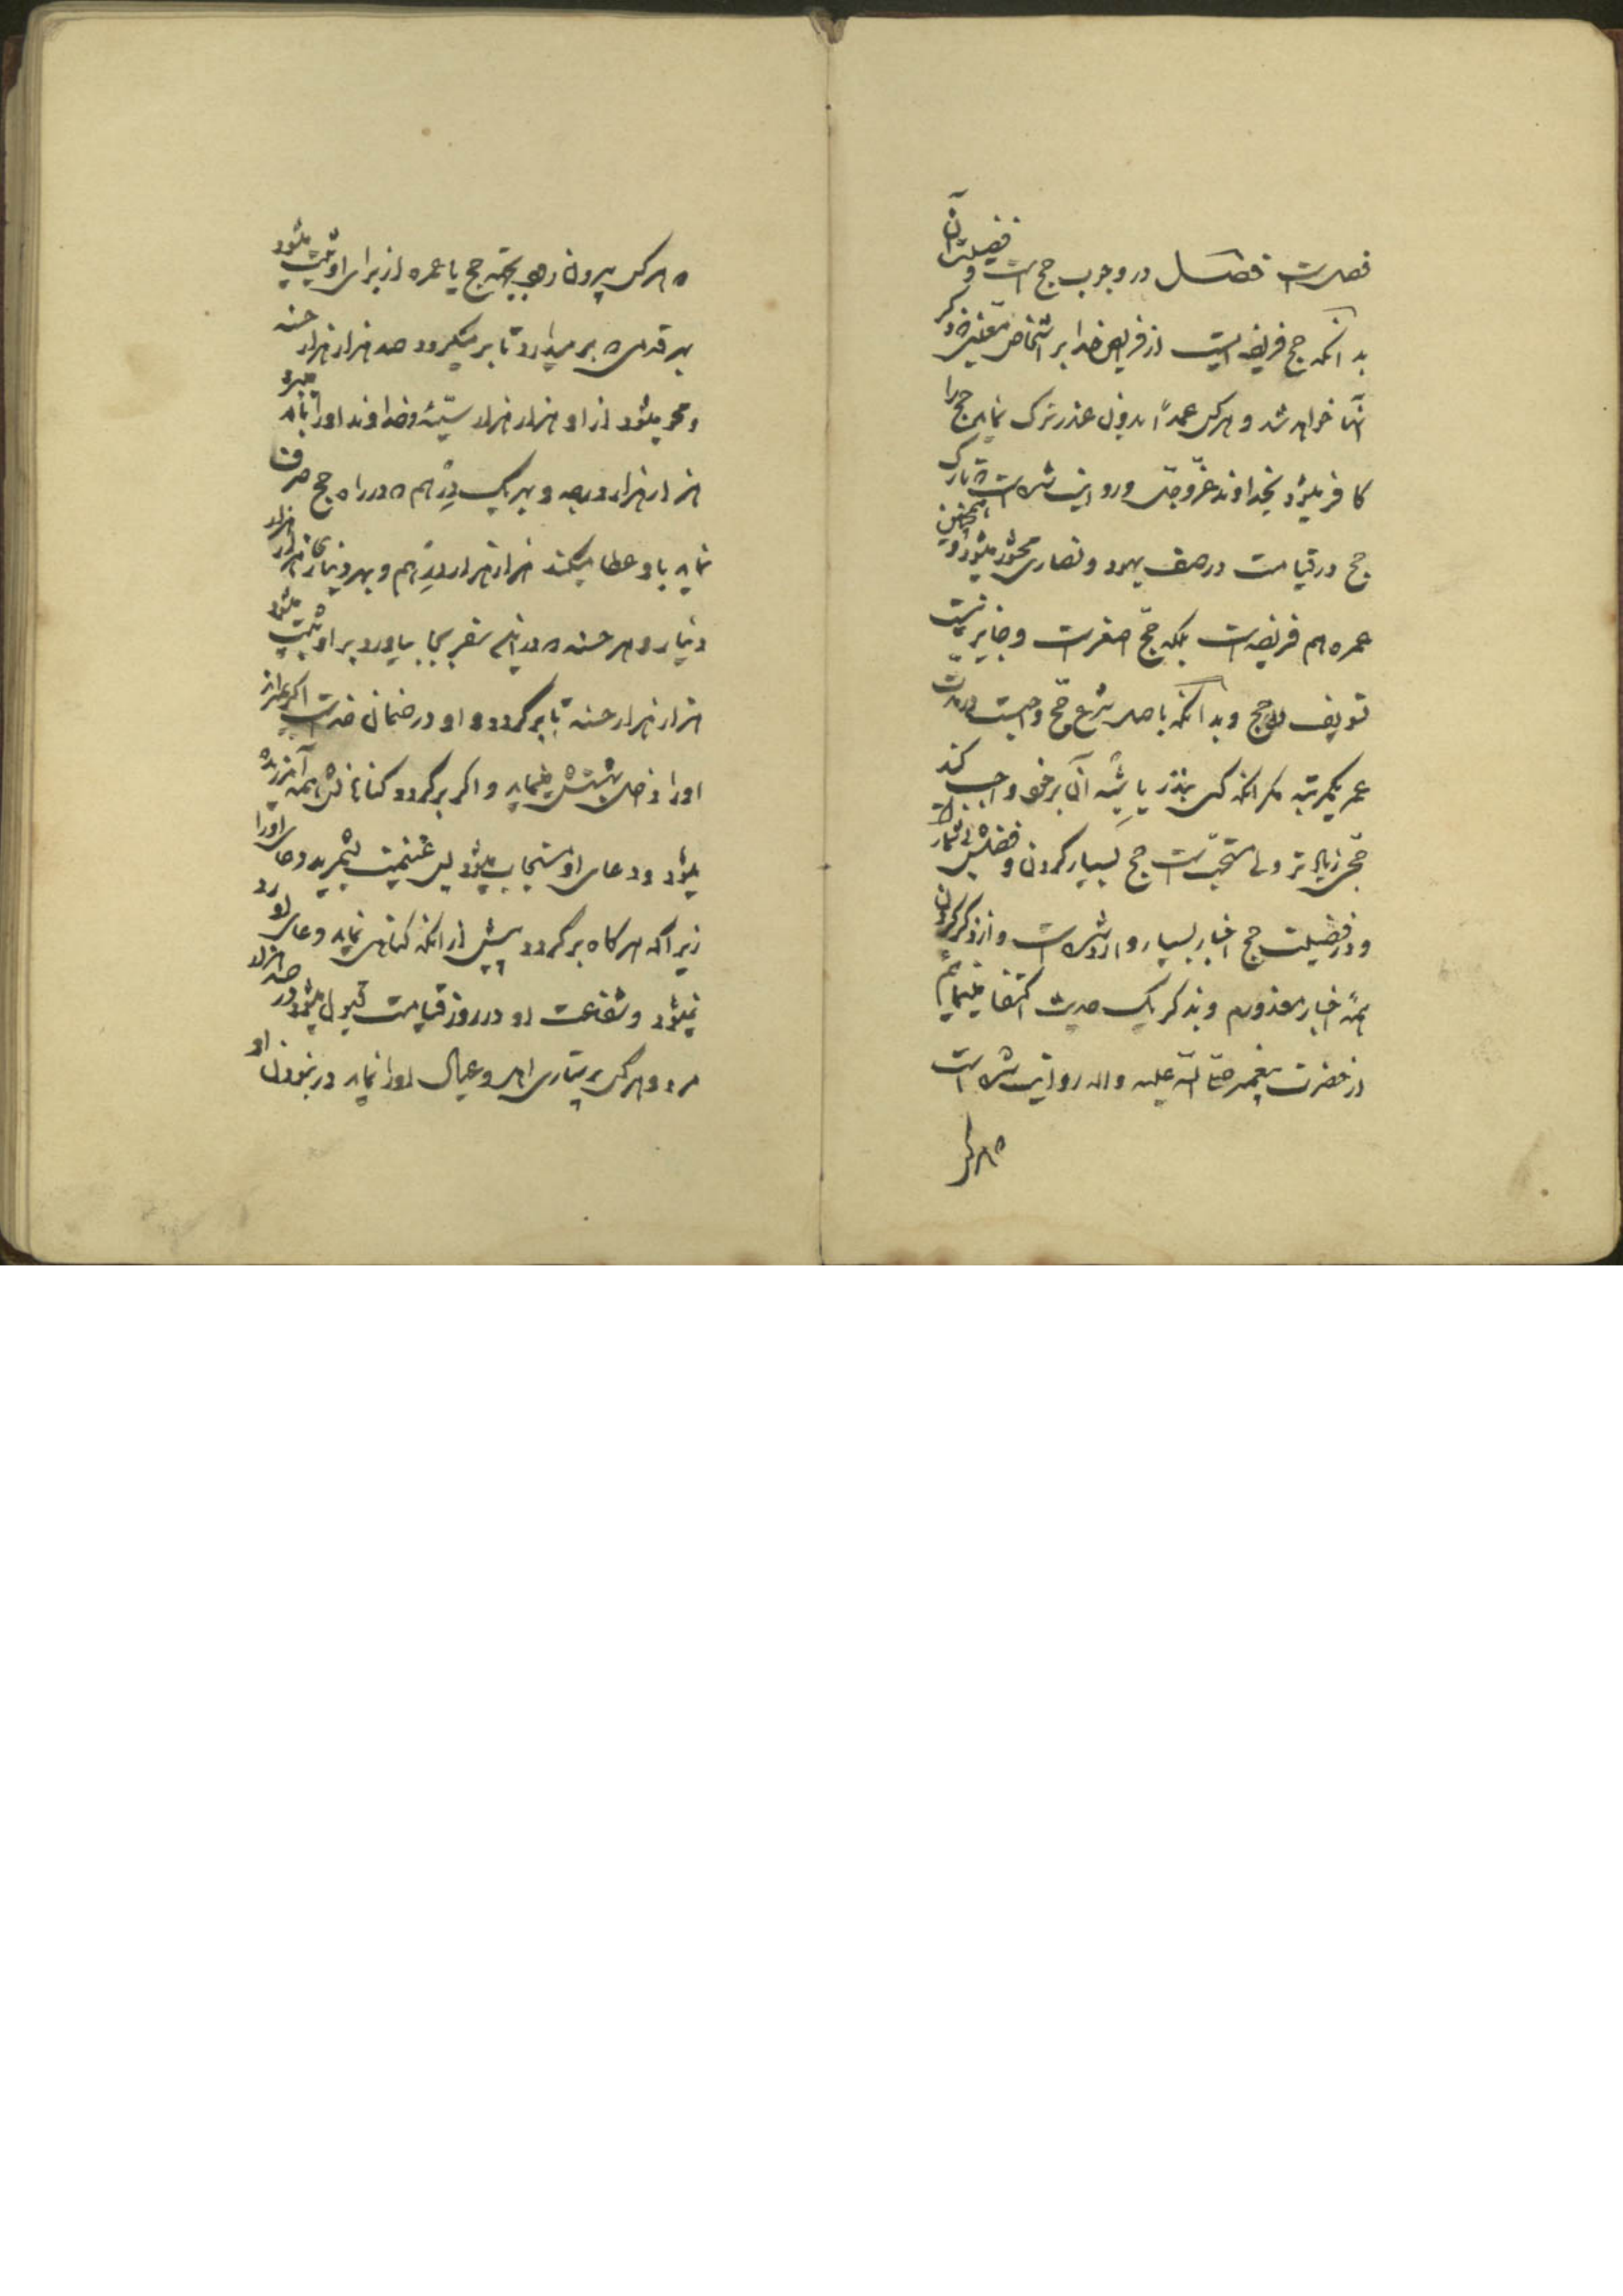 فصل است فصل در وجوب حج است و فضیلت آن
بدانکه حج فریضه ایست از فرایض خدا بر اشخاص معینی که ذکر
آنها خواهد شد و هر کس عمداً بدون عذر ترک نماید حج را
کافر میشود بخداوند عزّوجلّ و روایت شده است که تارک
حج در قیامت در صف یهود و نصاری محشور میشود و همچنین
عمره هم فریضه است بلکه حجّ اصغر است و جایز نیست
تسویف در حج و بدانکه باصل شرع حجّ واجب است در مدت
عمر یکمرتبه مگر آنکه کسی بنذر یا شبه آن بر خود واجب کند
حجّی زیادتر ولی مستحبّ است حج بسیار کردن و فضلش بی شمار است
و در فضیلت حج اخبار بسیار وارد شده است و از ذکر کردن
همهٔ اخبار معذورم و بذکر یک حدیث اکتفا مینمایم
از حضرت پیغمبر صلّی الله علیه و اله روایت شده است
که هر کس
که هر کس بیرون رود بجهة حج یا عمره از برای او ثبت میشود
بهر قدمی که بر میدارد تا بر میگردد صد هزار هزار حسنه
و محو میشود از او هزار هزار سیّئه و خداوند او را بالا میبرد
هزار هزار درجه و بهر یک درهم که در راه حج صرف
نماید باو عطا میکند هزار هزار درهم و بهر دیناری هزار هزار
دینار و هر حسنه که در این سفر بجا بیاورد بر او ثبت میشود
هزار هزار حسنه تا برگردد و او در ضمان خداست اگر بمیراند
او را داخل بهشتش مینماید و اگر برگردد گناهانش همه آمرزیده
میشود و دعای او مستجاب میشود پس غنیمت بشمرید دعای او را
زیرا که هر گاه برگردد پیش از آنکه گناهی نماید دعای او رد
نمیشود و شفاعت او در روز قیامت قبول میشود در صد هزار
مرد و هر کس پرستاری اهل و عیال او را نماید در نبودن او